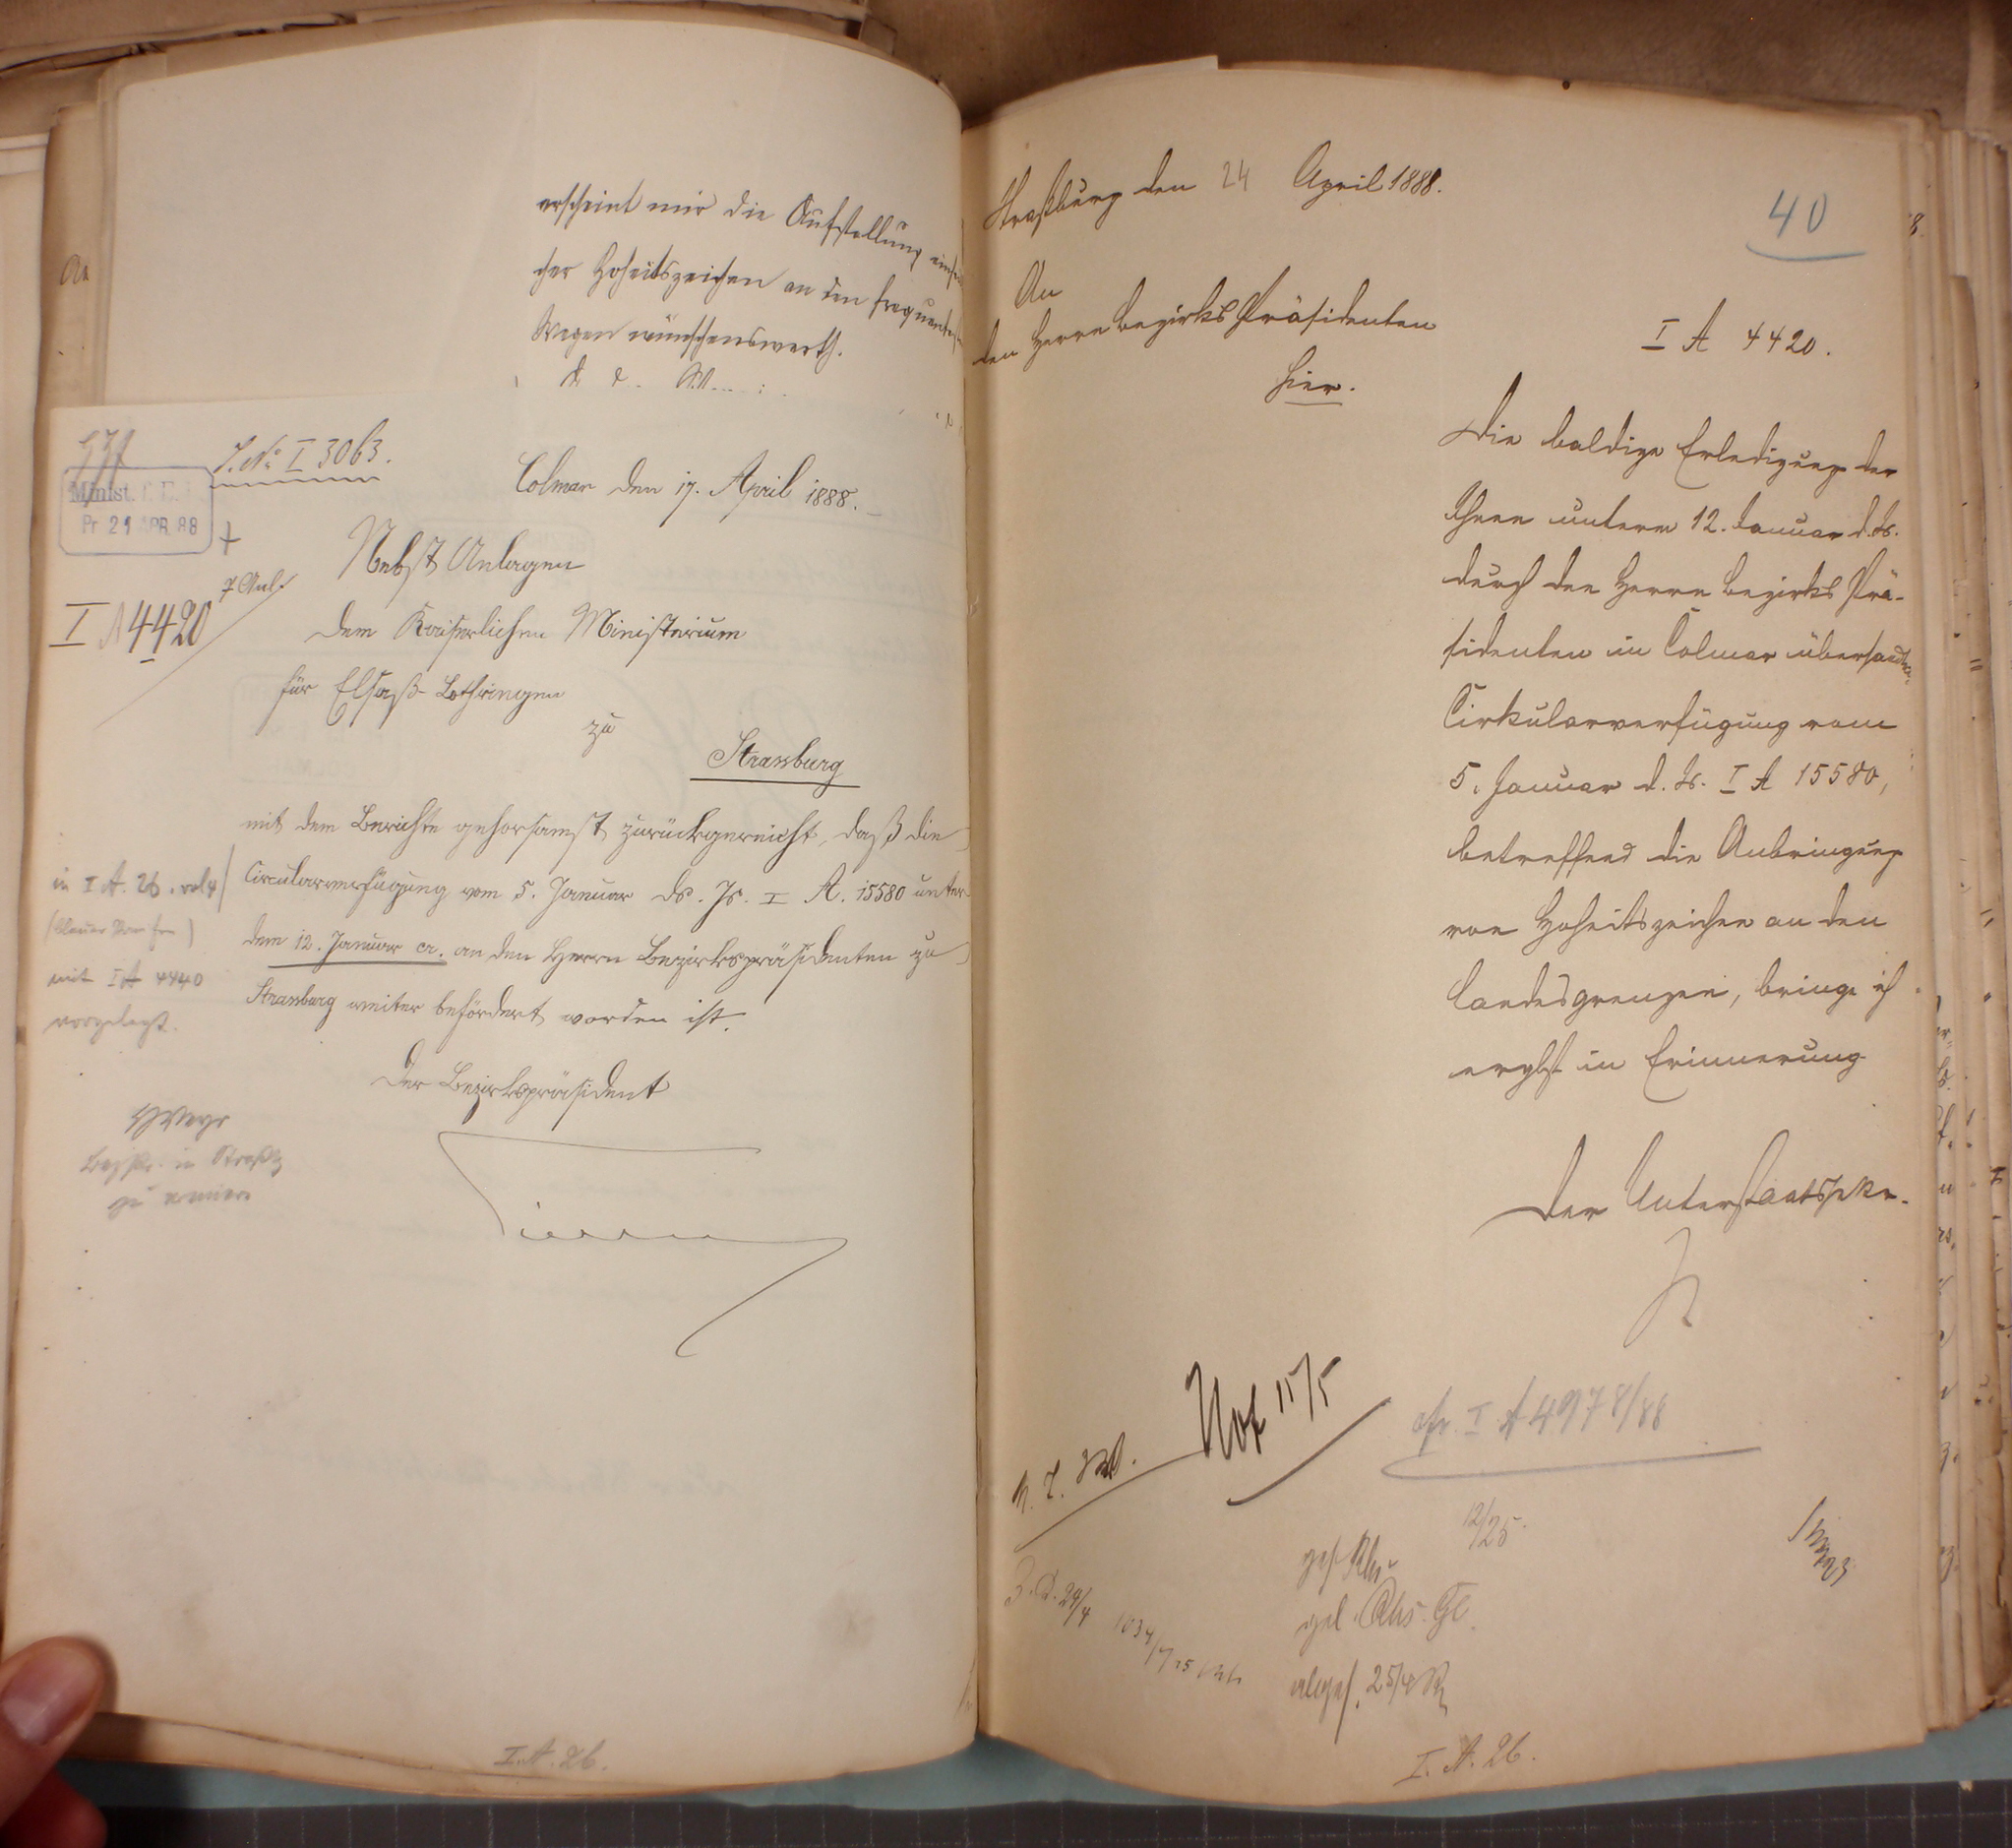 erscheint mir die Aufstellung
cher Hoheitszeichen an den frequenten
Wegen wünschenswerth.
J. No. I 3063.
Minist. f. E.
Pr. 21 APR. 88
Colmar den 17. April 1888.
7 Anl.
I A 4420
Nebst Anlagen
dem Kaiserlichen Ministerium
für Elsaß-Lothringen
zu
Strassburg
mit dem Berichte gehorsamst zurückgereicht, daß die
Circularverfügung vom 5. Januar ds. Js. I A. 15580 unter
dem 12. Januar cr. an den Herrn Bezirkspräsidenten zu
Strassburg weiter befördert worden ist.
Der Bezirkspräsident
in I A. 26. vol 4
mit I A 4440
vorgelegt.
I. A. 26.
Straßburg den 24 April 1888.
40
An
den Herrn Bezirks Präsidenten
hier.
I A 4420.
Die baldige Erledigung der
Ihnen unterm 12. Januar d. Js.
durch den Herrn Bezirks Prä-
sidenten in Colmar übersandten
Cirkularverfügung vom
5. Januar d. Js. I A 15580,
betreffend die Anbringung
von Hoheitszeichen an den
Landesgrenzen, bringe ich
ergbst in Erinnerung
Der Unterstaatssekr.
15/5
cfr. I A 4978/88
12/25.
Z. D. 24/4
abges. 25/4
I. A. 26.